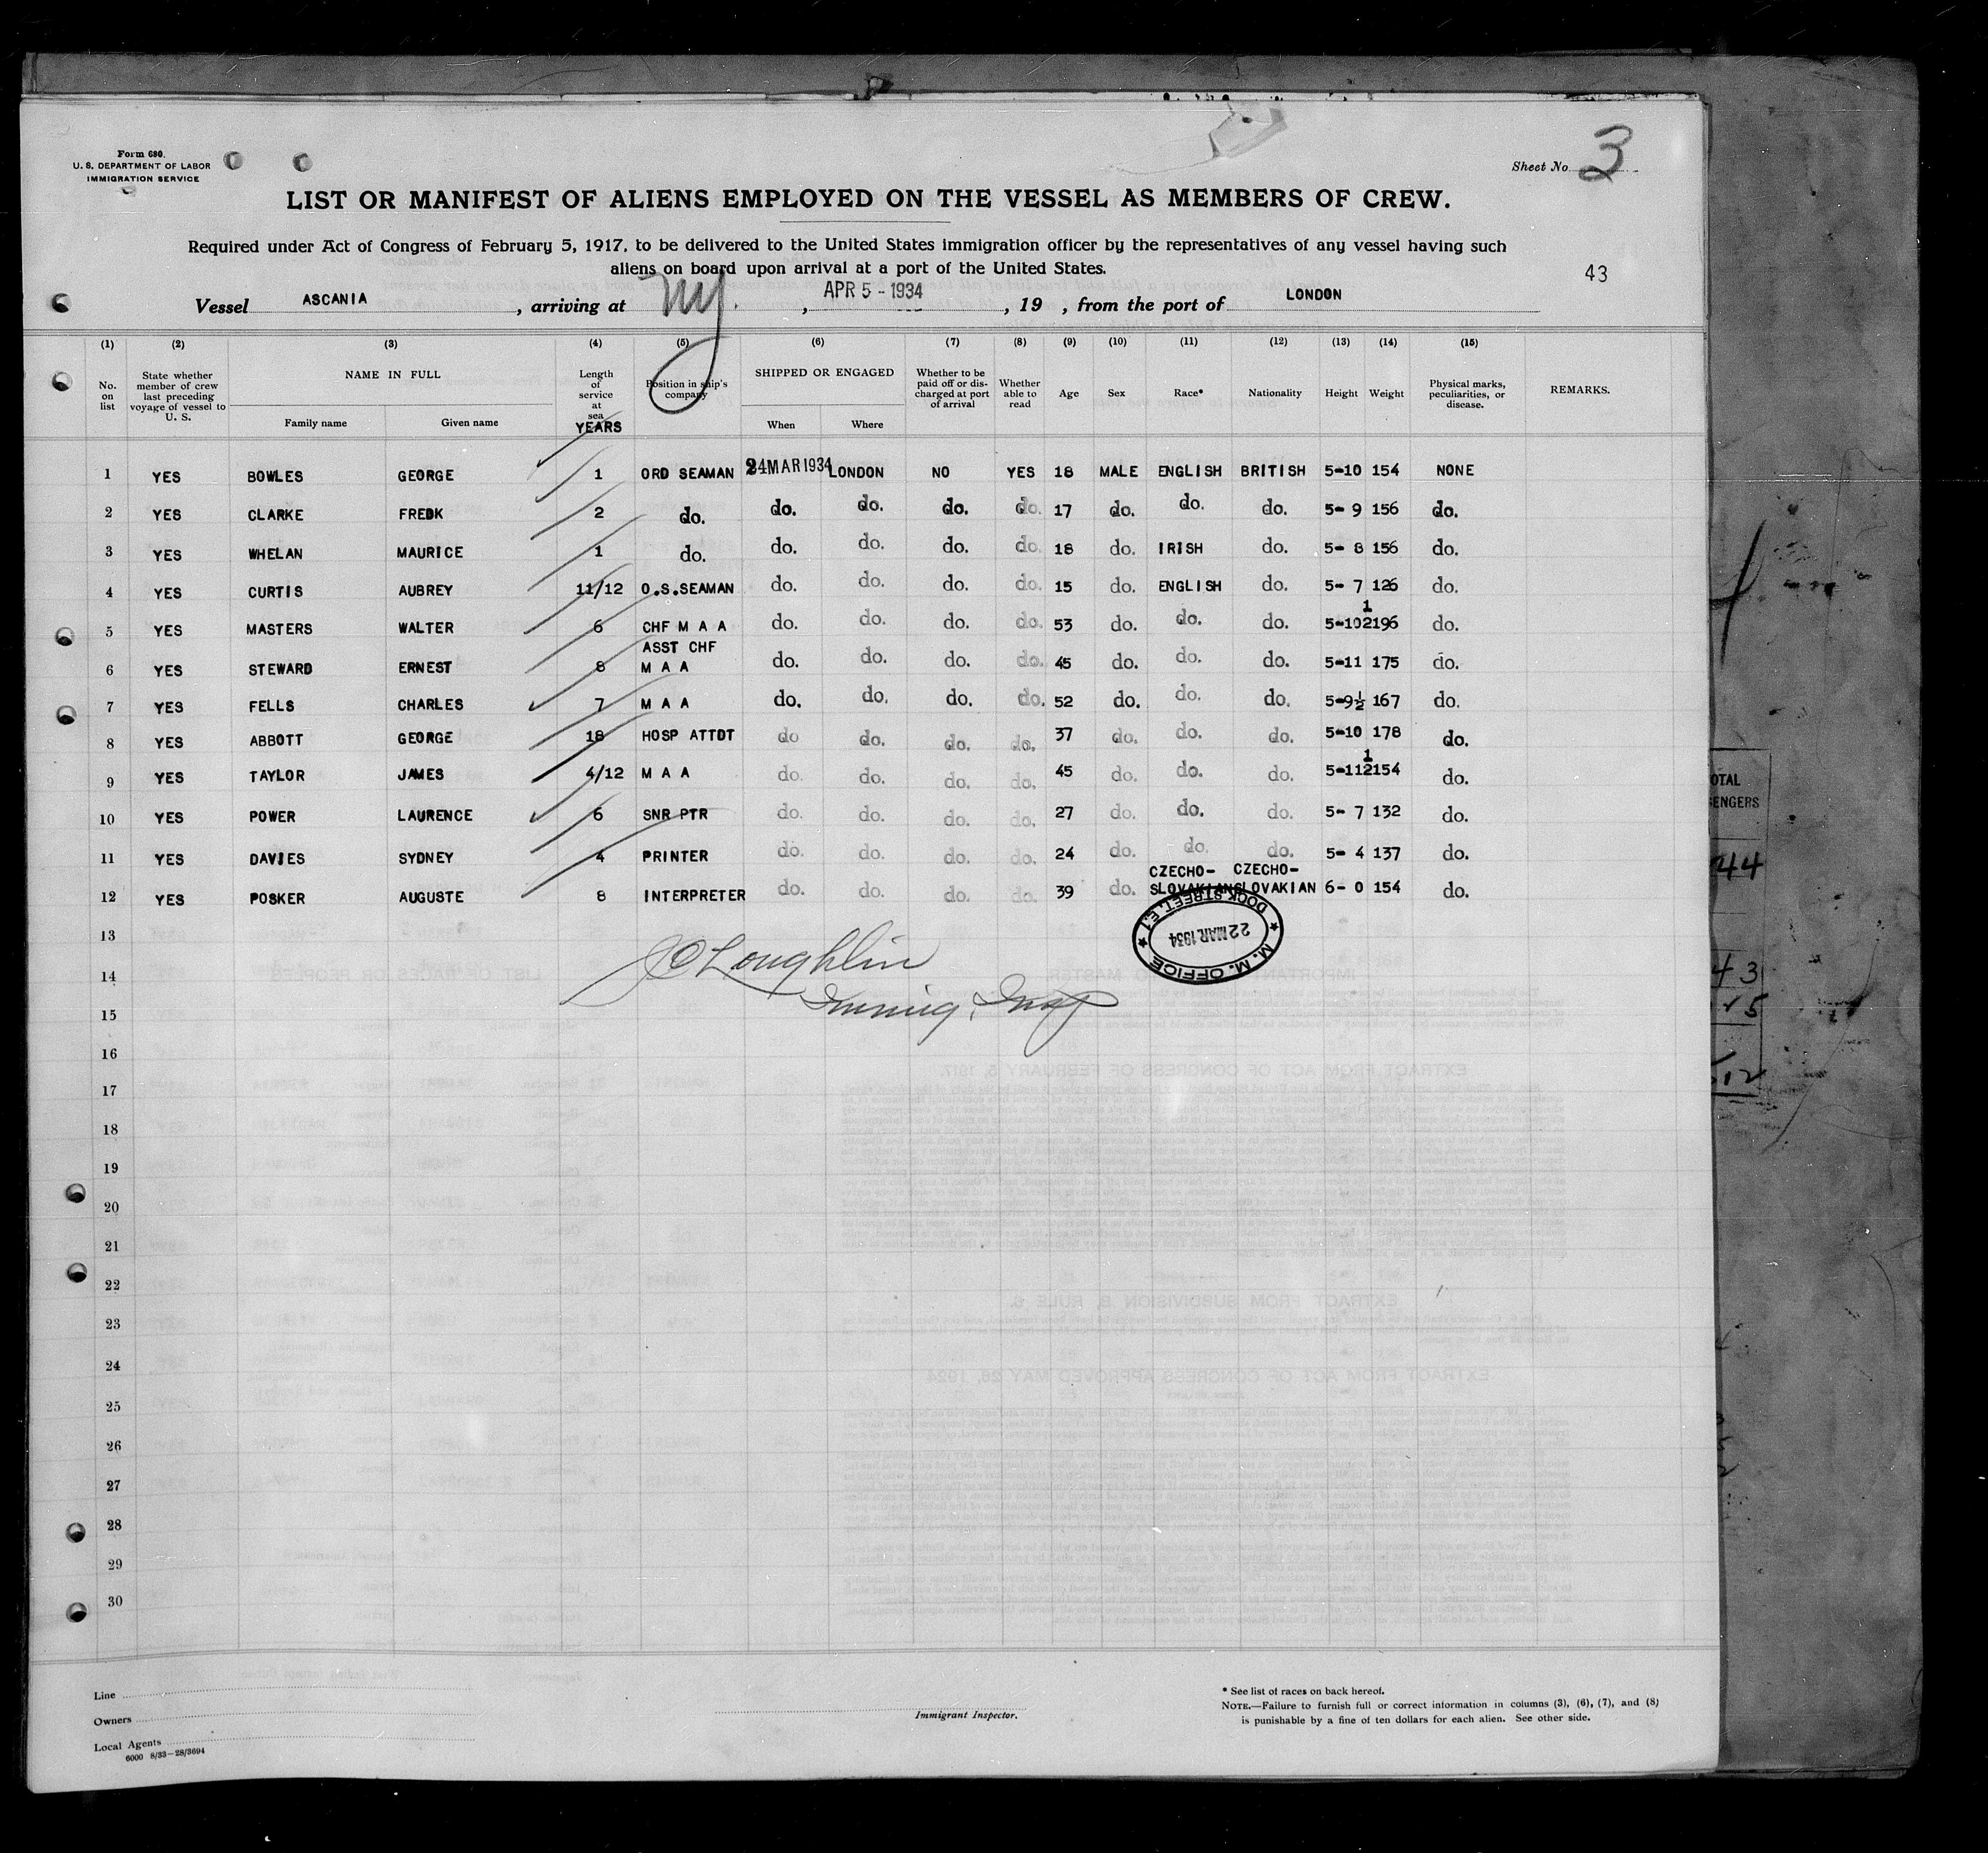 Form 680.
U. S. DEPARTMENT OF LABOR
IMMIGRATION SERVICE
Sheet No. 3
LIST OR MANIFEST OF ALIENS EMPLOYED ON THE VESSEL AS MEMBERS OF CREW.
Required under Act of Congress of February 5, 1917, to be delivered to the United States immigration officer by the representatives of any vessel having such
aliens on board upon arrival at a port of the United States.
43
Vessel ASCANIA, arriving at NY., APR 5 - 1934, 19 , from the port of LONDON
(1) (2) (3) (4) (5) (6) (7) (8) (9) (10) (11) (12) (13) (14) (15)
No. on list State whether member of crew last preceding voyage of vessel to U. S. NAME IN FULL Family name Given name Length of service at sea YEARS Position in ship's company SHIPPED OR ENGAGED When Where Whether to be paid off or discharged at port of arrival Whether able to read Age Sex Race* Nationality Height Weight Physical marks, peculiarities, or disease. REMARKS.
1 YES BOWLES GEORGE 1 ORD SEAMAN 24 MAR 1934 LONDON NO YES 18 MALE ENGLISH BRITISH 5-10 154 NONE
2 YES CLARKE FREDK 2 do. do. do. do. do. 17 do. do. do. 5- 9 156 do.
3 YES WHELAN MAURICE 1 do. do. do. do. do. 18 do. IRISH do. 5- 8 156 do.
4 YES CURTIS AUBREY 11/12 O.S.SEAMAN do. do. do. do. 15 do. ENGLISH do. 5- 7 126 do.
5 YES MASTERS WALTER 6 CHF M A A do. do. do. do. 53 do. do. do. 5-10 1/2 196 do.
6 YES STEWARD ERNEST 8 ASST CHF M A A do. do. do. do. 45 do. do. do. 5-11 175 do.
7 YES FELLS CHARLES 7 M A A do. do. do. do. 52 do. do. do. 5-9½ 167 do.
8 YES ABBOTT GEORGE 18 HOSP ATTDT do do. do. do. 37 do. do. do. 5-10 178 do.
9 YES TAYLOR JAMES 4/12 M A A do. do. do. do. 45 do. do. do. 5-11 1/2 154 do.
10 YES POWER LAURENCE 6 SNR PTR do. do. do. do. 27 do. do. do. 5- 7 132 do.
11 YES DAVIES SYDNEY 4 PRINTER do. do. do. do. 24 do. do. do. 5- 4 137 do.
12 YES POSKER AUGUSTE 8 INTERPRETER do. do. do. do. 39 do. CZECHO-SLOVAKIAN CZECHO-SLOVAKIAN 6- 0 154 do.
M. M. OFFICE
22 MAR 1934
DOCK STREET. E.1
13
J O'Loughlin
14
Immig. Insp
15
16
17
18
19
20
21
22
23
24
25
26
27
28
29
30
Line
Owners
Local Agents
6000 8/33—28/3694
Immigrant Inspector.
* See list of races on back hereof.
NOTE.—Failure to furnish full or correct information in columns (3), (6), (7), and (8)
is punishable by a fine of ten dollars for each alien. See other side.
OTAL
ENGERS
44
43